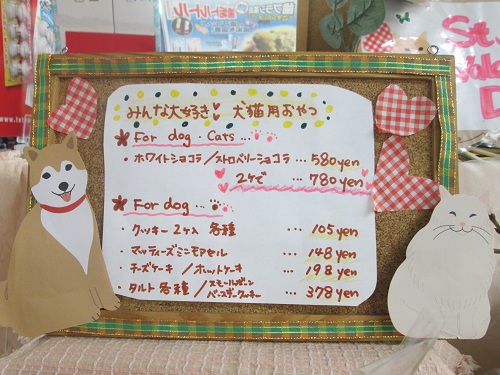 みんな大好き♥ 犬猫用おやつ
For dog・Cats...
・ホワイトショコラ/ストロベリーショコラ … 580yen
2ケで … 780yen
For dog...
・クッキー2ヶ入 各種 … 105yen
マッティーズミニモアセル … 148yen
・チーズケーキ / ホットケーキ … 198yen
・タルト 各種 / スモールボーン バースデークッキー … 378yen